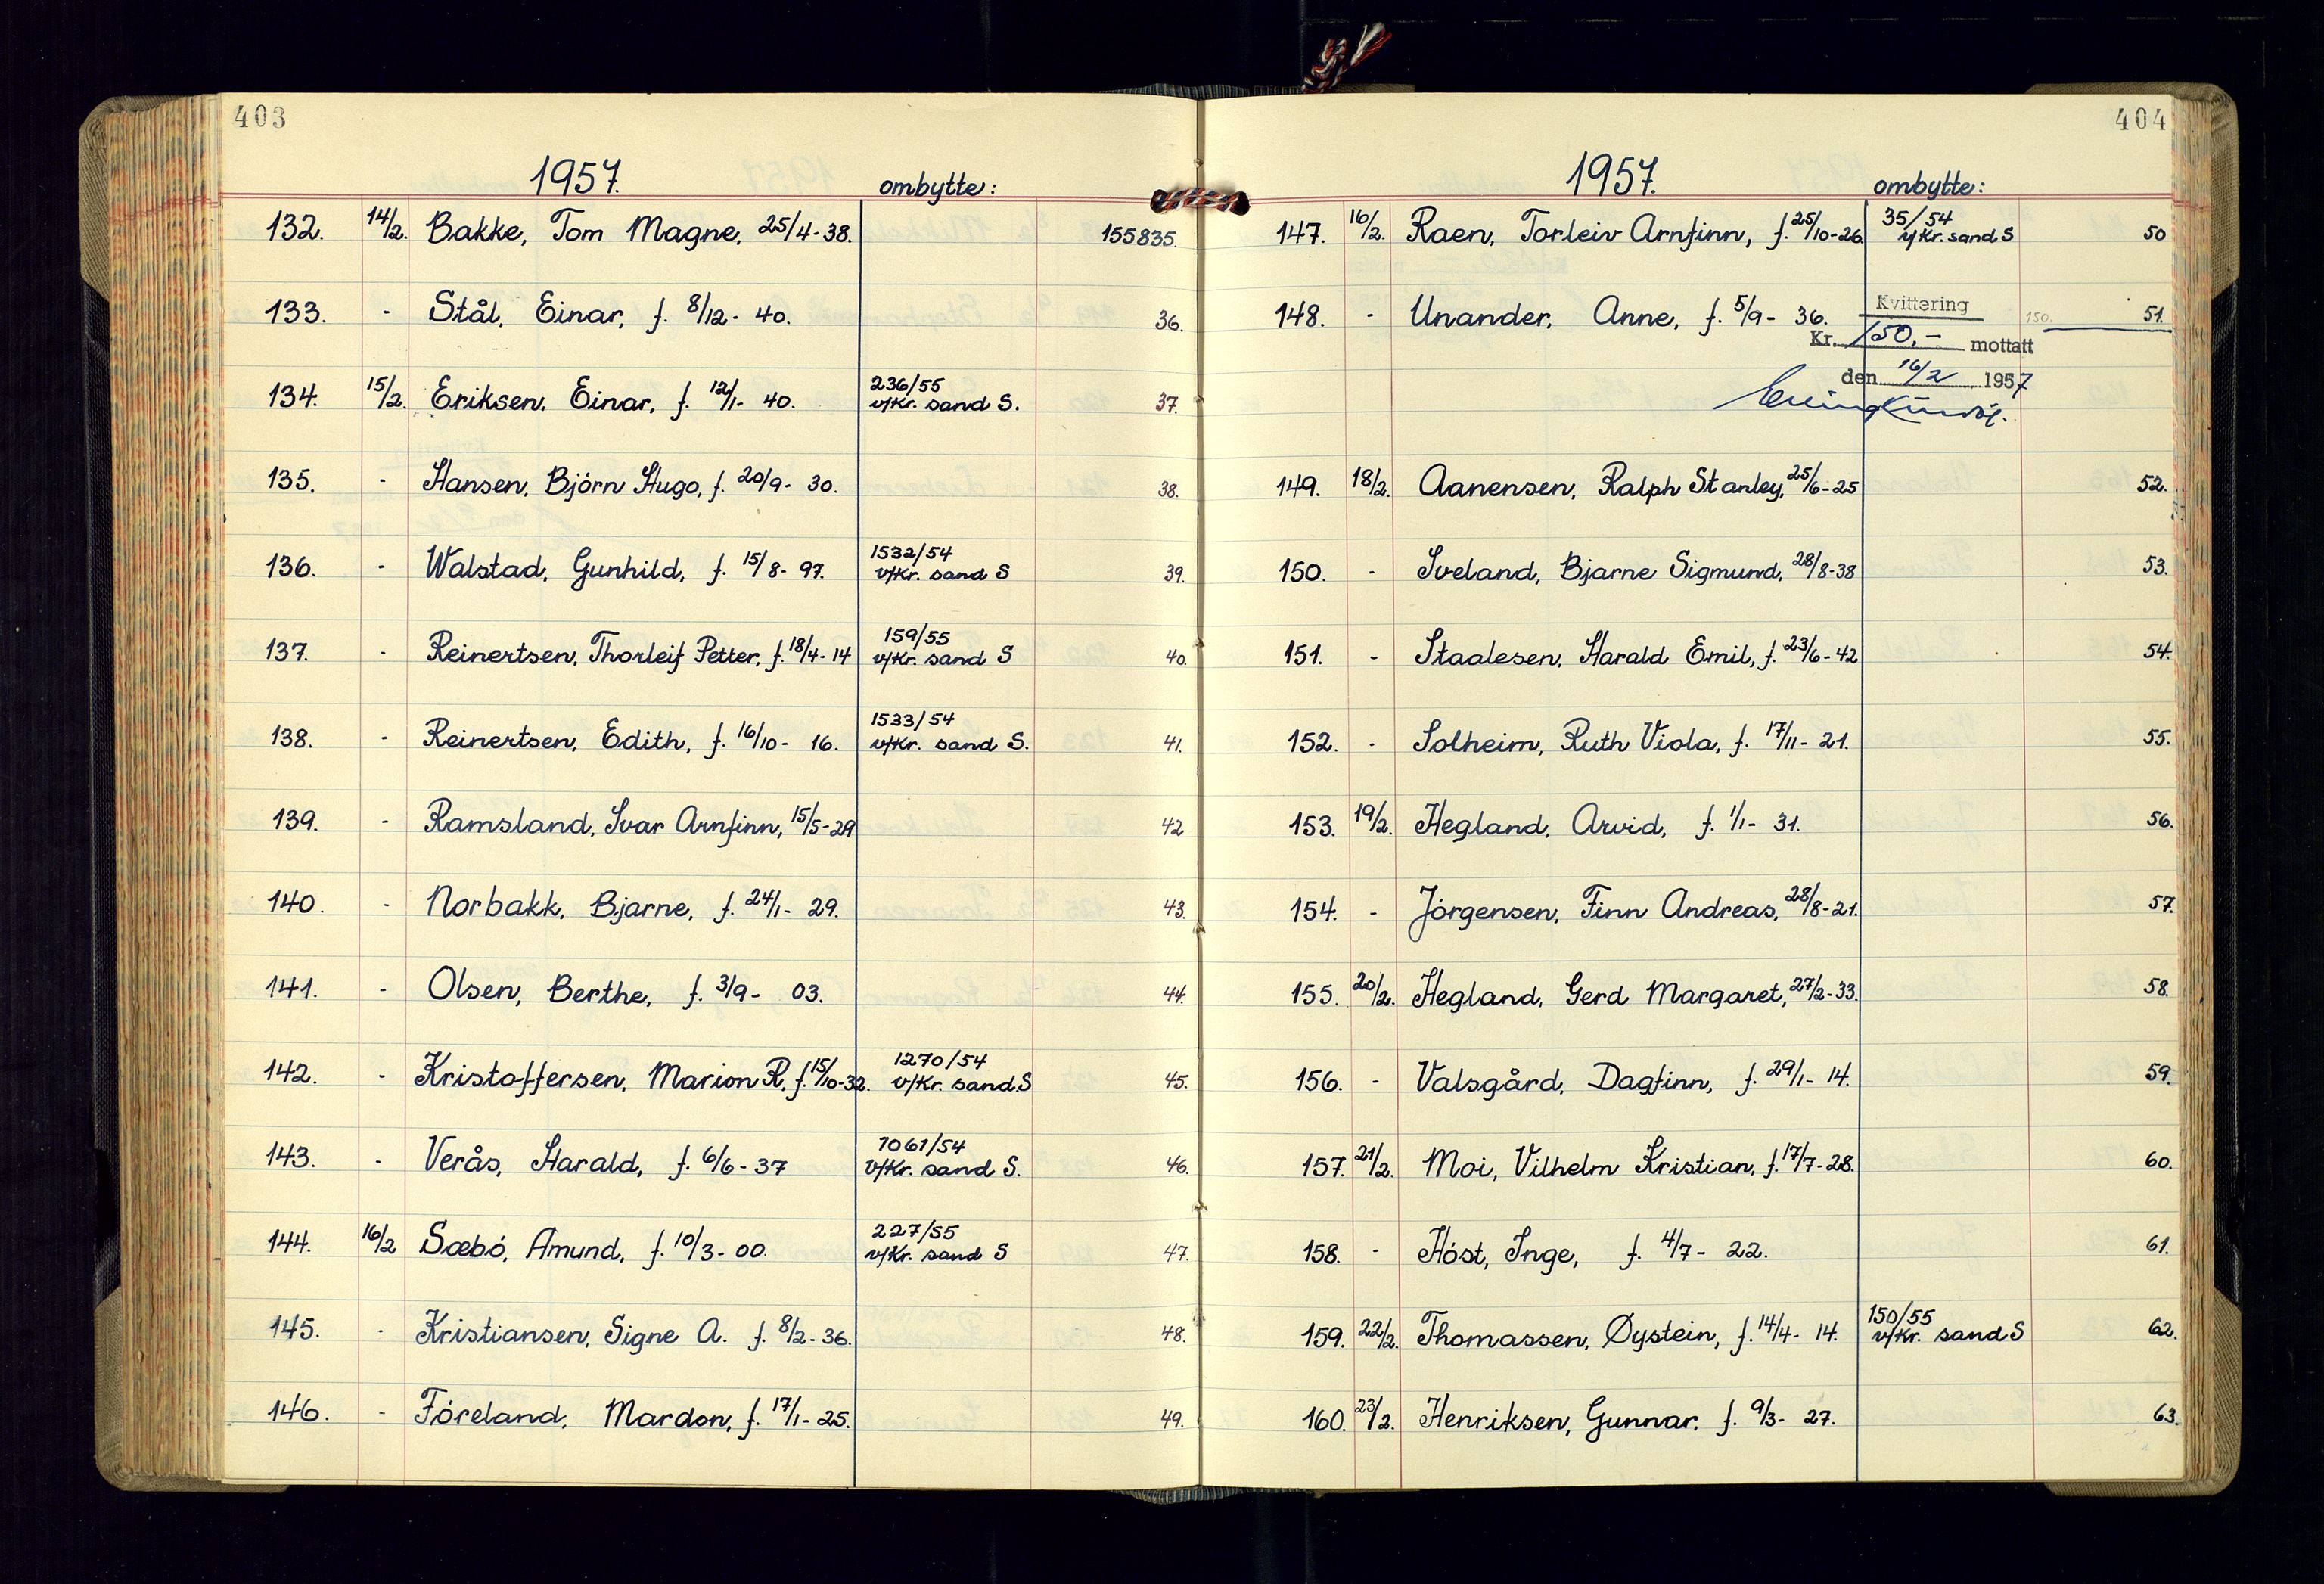 403
1957.
ombytte:
132. 14/2. Bakke, Tom Magne, 25/4-38. 155835.
133. - Stål, Einar, f. 8/12-40. 36.
134. 15/2. Eriksen, Einar, f. 12/1-40. 236/55 v/Kr. sand S. 37.
135. - Hansen, Björn Hugo, f. 20/9-30. 38.
136. - Walstad, Gunhild, f. 15/8-97. 1532/54 v/Kr. sand S 39.
137. - Reinertsen, Thorleif Petter, f. 18/4-14 159/55 v/Kr. sand S 40.
138. - Reinertsen, Edith, f. 16/10-16. 1533/54 v/Kr. sand S. 41.
139. - Ramsland, Ivar Arnfinn, 15/5-29 42
140. - Norbakk, Bjarne, f. 24/1-29. 43.
141. - Olsen, Berthe, f. 3/9-03. 44.
142. - Kristoffersen, Marion R, f. 15/10-32. 1270/54 v/Kr. sand S 45.
143. - Verås, Harald, f. 6/6-37 1061/54 v/Kr. sand S. 46.
144. 16/2 Sæbó, Amund, f. 10/3-00. 227/55 v/Kr. sand S 47.
145. - Kristiansen, Signe A. f. 8/2-36. 48.
146. - Fóreland, Mardon, f. 17/1-25. 49.
404
1957.
ombytte:
147. 16/2. Raen, Torleiv Arnfinn, f. 25/10-26 35/54 v/Kr. sand S 50
148. - Unander, Anne, f. 5/9-36. 150. 51.
Kvittering
Kr. 150,- mottatt
den 16/2 1957
149. 18/2. Aanensen, Ralph Stanley, 25/6-25 52.
150. - Sveland, Bjarne Sigmund, 28/8-38 53.
151. - Staalesen, Harald Emil, f. 23/6-42 54.
152. - Solheim, Ruth Viola, f. 17/11-21. 55.
153. 19/2. Hegland, Arvid, f. 1/1-31. 56.
154. - Jórgensen, Finn Andreas, 28/8-21. 57.
155. 20/2. Hegland, Gerd Margaret, 27/2-33. 58.
156. - Valsgård, Dagfinn, f. 29/1-14. 59.
157. 21/2. Moi, Vilhelm Kristian, f. 17/7-28. 60.
158. - Hóst, Inge, f. 4/7-22. 61.
159. 22/2. Thomassen, Øystein, f. 14/4-14. 150/55 v/Kr. sand S 62.
160. 23/2. Henriksen, Gunnar, f. 9/3-27. 63.